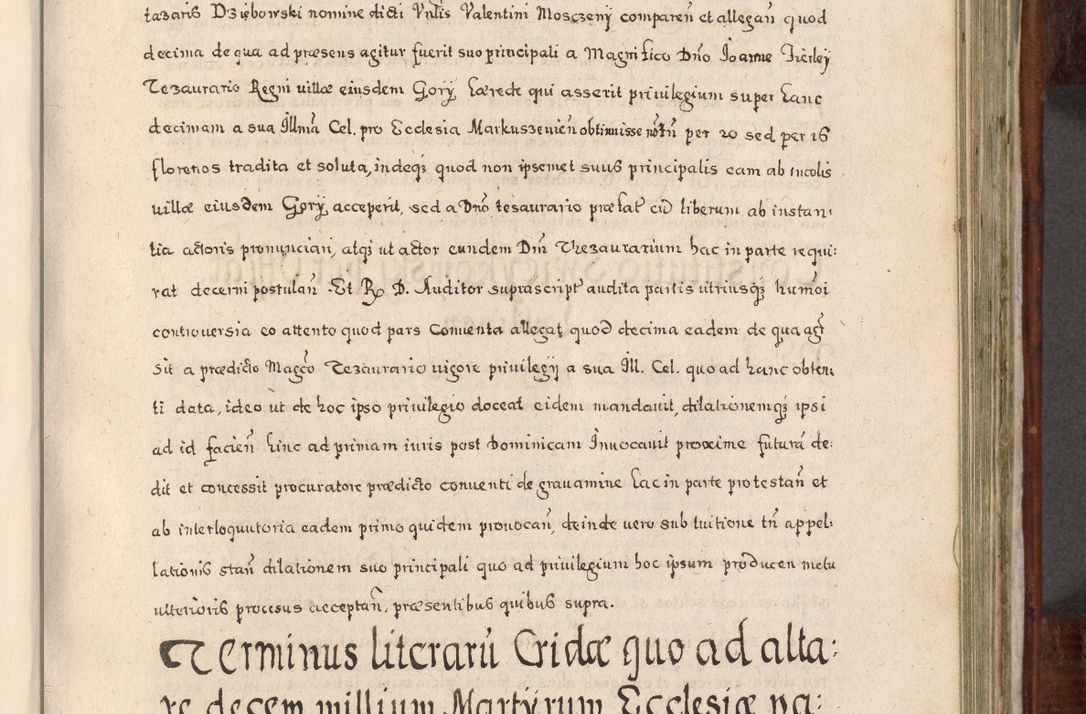 tazaris Dziębowski nomine dicti Vnlis Valentini Mosczeny comparen̄ et allegan̄ quod
decima de qua ad præsens agitur fuerit suo principali a Magnifico Dn̄o Joanne Firley
Tezaurario Regni villæ eiusdem Gory hærede qui asserit privilegium super hanc
decimam a sua Illmā Cel. pro Ecclesia Markuszevien̄ obtinuisse per 20 sed per 16
florenos tradita et soluta, indeq3 quod non ipsemet suus principalis eam ab incolis
villæ eiusdem Gory acceperit, sed a Dn̄o tesaurario præfat eū liberum ab instan:
tia actoris pronunciari, atq3 ut actor eundem Dn̄m Thezaurarium hac in parte requi:
rat decerni postulan̄ Et R. D. Auditor suprascript audita partis utriusq3 humōi
controversia eo attento quod pars Conventa allegat quod decima eadem de qua agr̄
sit a prædicto Magco Tezaurario vigore privilegij a sua Ill. Cel. quo ad hanc obten:
ti data, ideo ut de hoc ipso privilegio doceat eidem mandavit, dilationemq3 ipsi
ad id facien̄ hinc ad primam iuris post Dominicam Innocavit proxime futurā de:
dit et concessit procuratore prædicto conventi de gravamine hac in parte protestan̄ et
ab interloquutoria eadem primo quidem provocan̄, deinde vero sub tuitione tn̄ appel:
lationis stan̄ dilationem suo principali quo ad privilegium hoc ipsum producen metu
ulterioris procesus acceptan̄, præsentibus quibus supra.
Terminus literarū Cridæ quo ad alta:
re decem millium Martyrum Ecclesiæ pa: